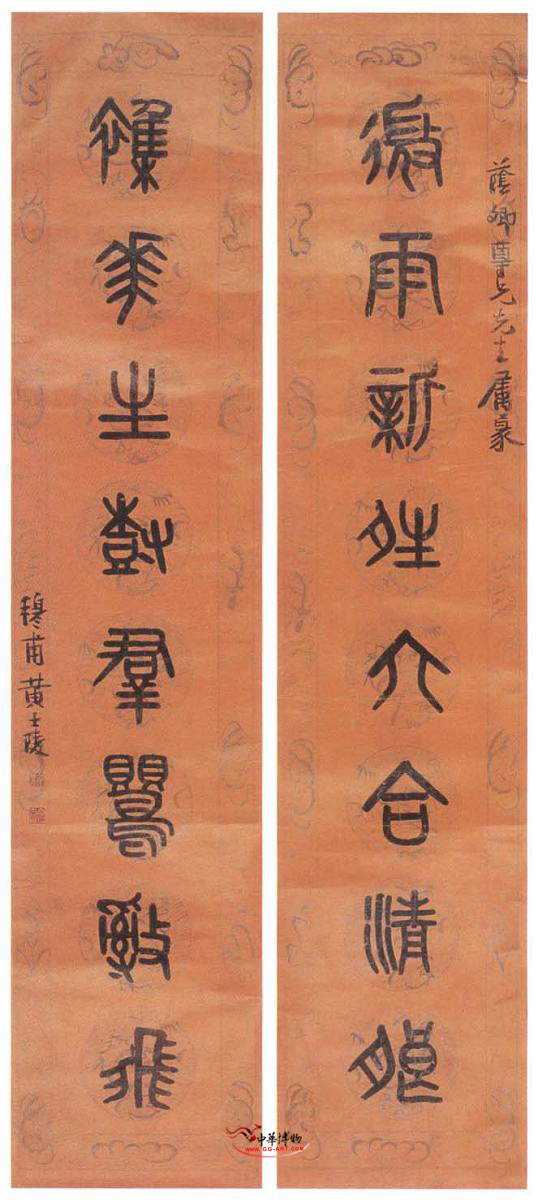 蔭卿尊兄先生屬篆
微雨新夝六合清朖
襍華生尌羣鸎𤔔飛
穆甫黃士陵
中華博物
WWW.GG-ART.COM